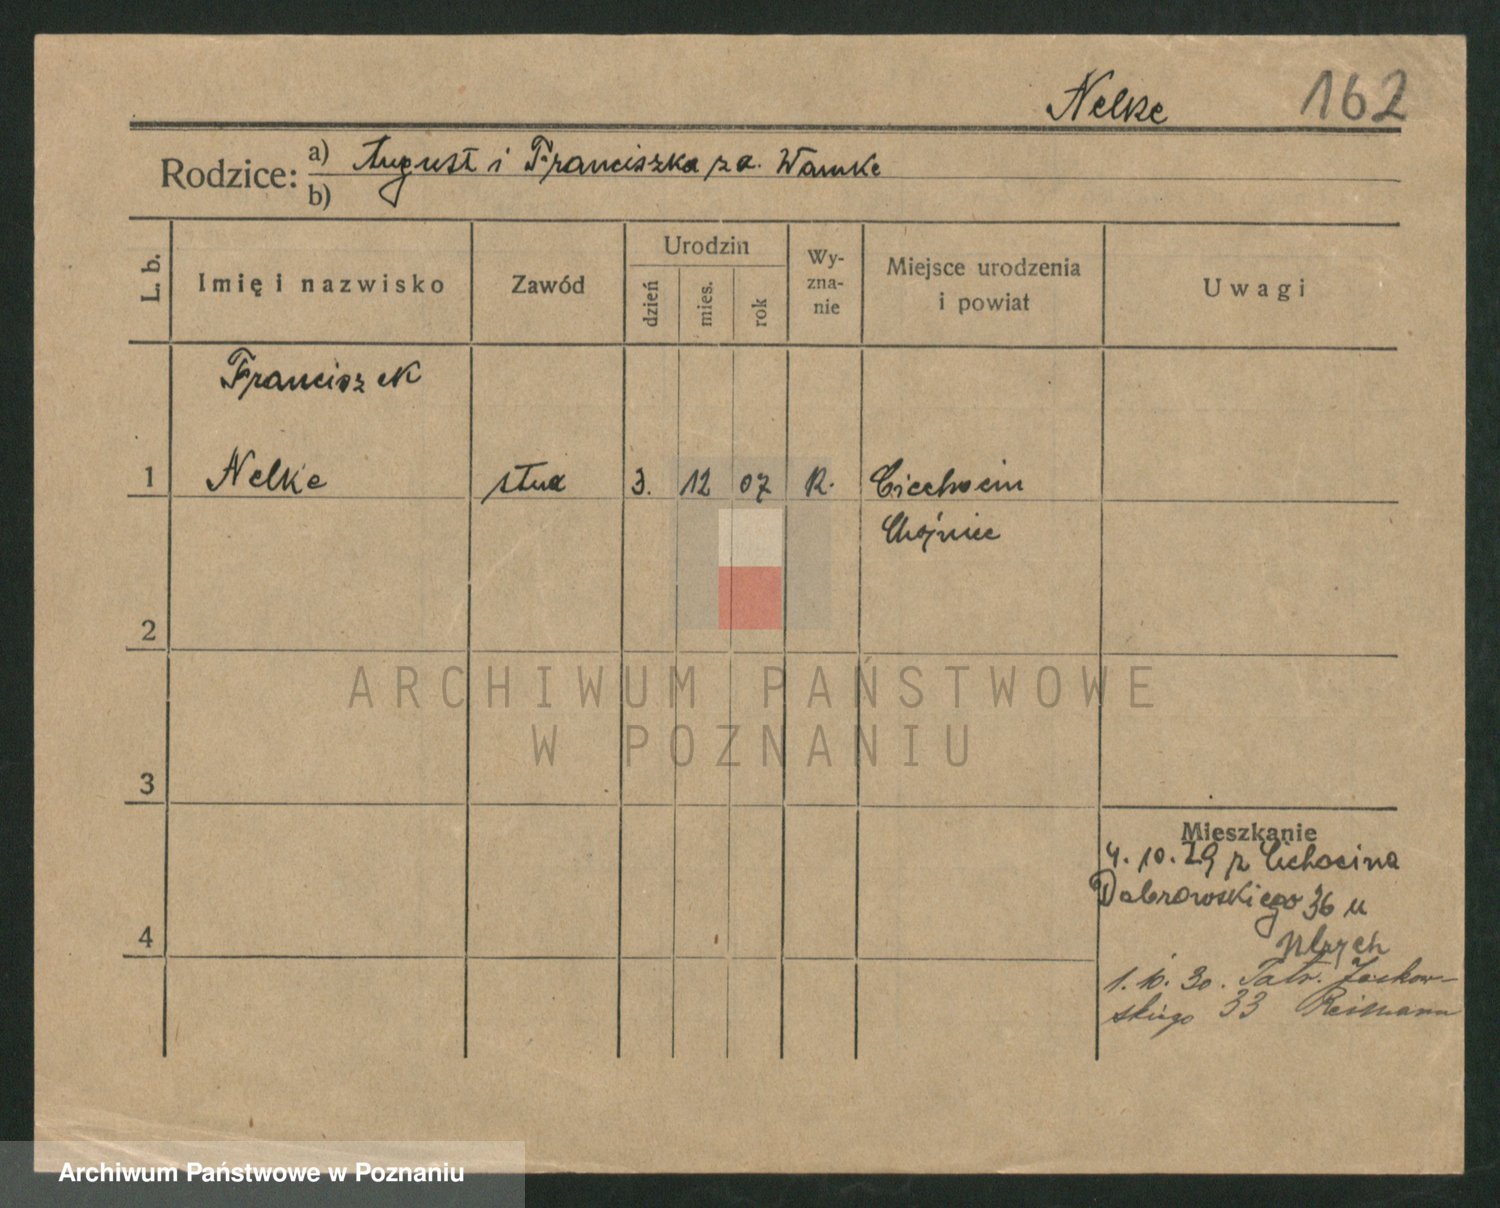 Nelke 162
Rodzice: a) August i Franciszka za. Warnke
b)
L. b. Imię i nazwisko Zawód Urodzin dzień mies. rok Wy-zna-nie Miejsce urodzenia i powiat Uwagi
Franciszek
1 Nelke stud 3. 12 07 R. Ciechocin
Chojnice
2
3
Mieszkanie
4. 10. 29 z Cichocina
Dabrowskiego 36 u
4
1. 10. 30. Patr. Jackow-
skiego 33 Reimann
ARCHIWUM PAŃSTWOWE
W POZNANIU
Archiwum Państwowe w Poznaniu